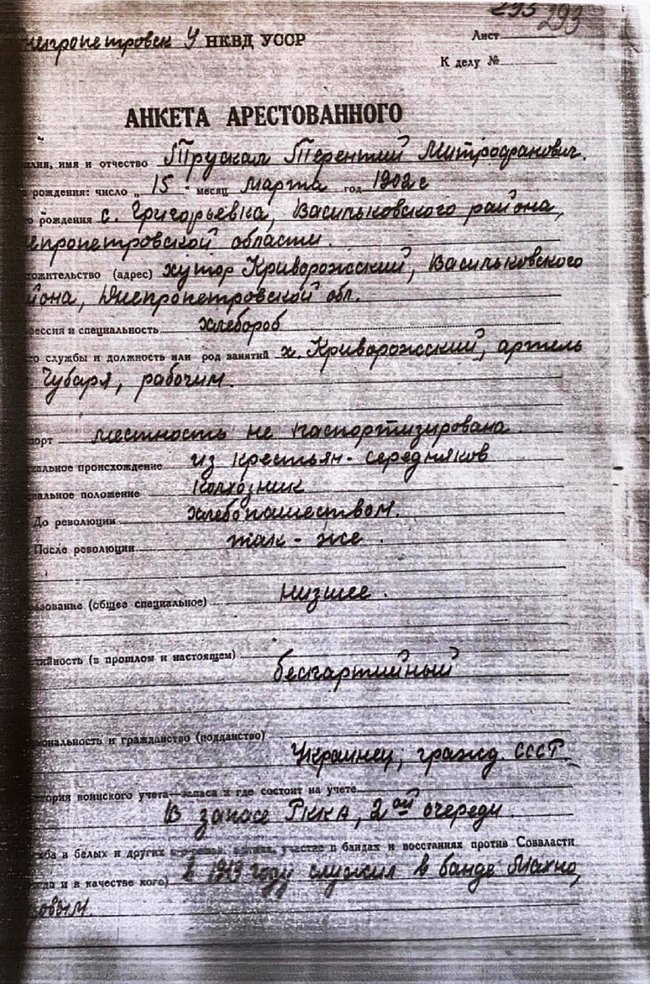 293 293
непропетровск У НКВД УССР
Лист
К делу №
АНКЕТА АРЕСТОВАННОГО
илия, имя и отчество Трускал Терентий Митрофанович.
рождения: число „15" месяц Марта год 1902 г
о рождения с. Григорьевка, Васильковского района,
епропетровской области.
тожительство (адрес) хутор Криворожский, Васильковского
йона, Днепропетровской обл.
ессия и специальность хлебороб
о службы и должность или род занятий х. Криворожский, артель
Губаря, рабочим.
порт местность не паспортизирована.
альное происхождение из крестьян-середняков
альное положение колхозник
До революции хлебопашеством.
После революции так-же.
зование (общее специальное) низшее.
тийность (в прошлом и настоящем)
беспартийный
ональность и гражданство (подданство)
Украинец, гражд. СССР.
гория воинского учета—запаса и где состоит на учете
В запасе РККА, 2ой очереди.
жба в белых и других армиях, участие в бандах и восстаниях против Соввласти
гда и в качестве кого) В 1919 году служил в банде Махно,
довым.